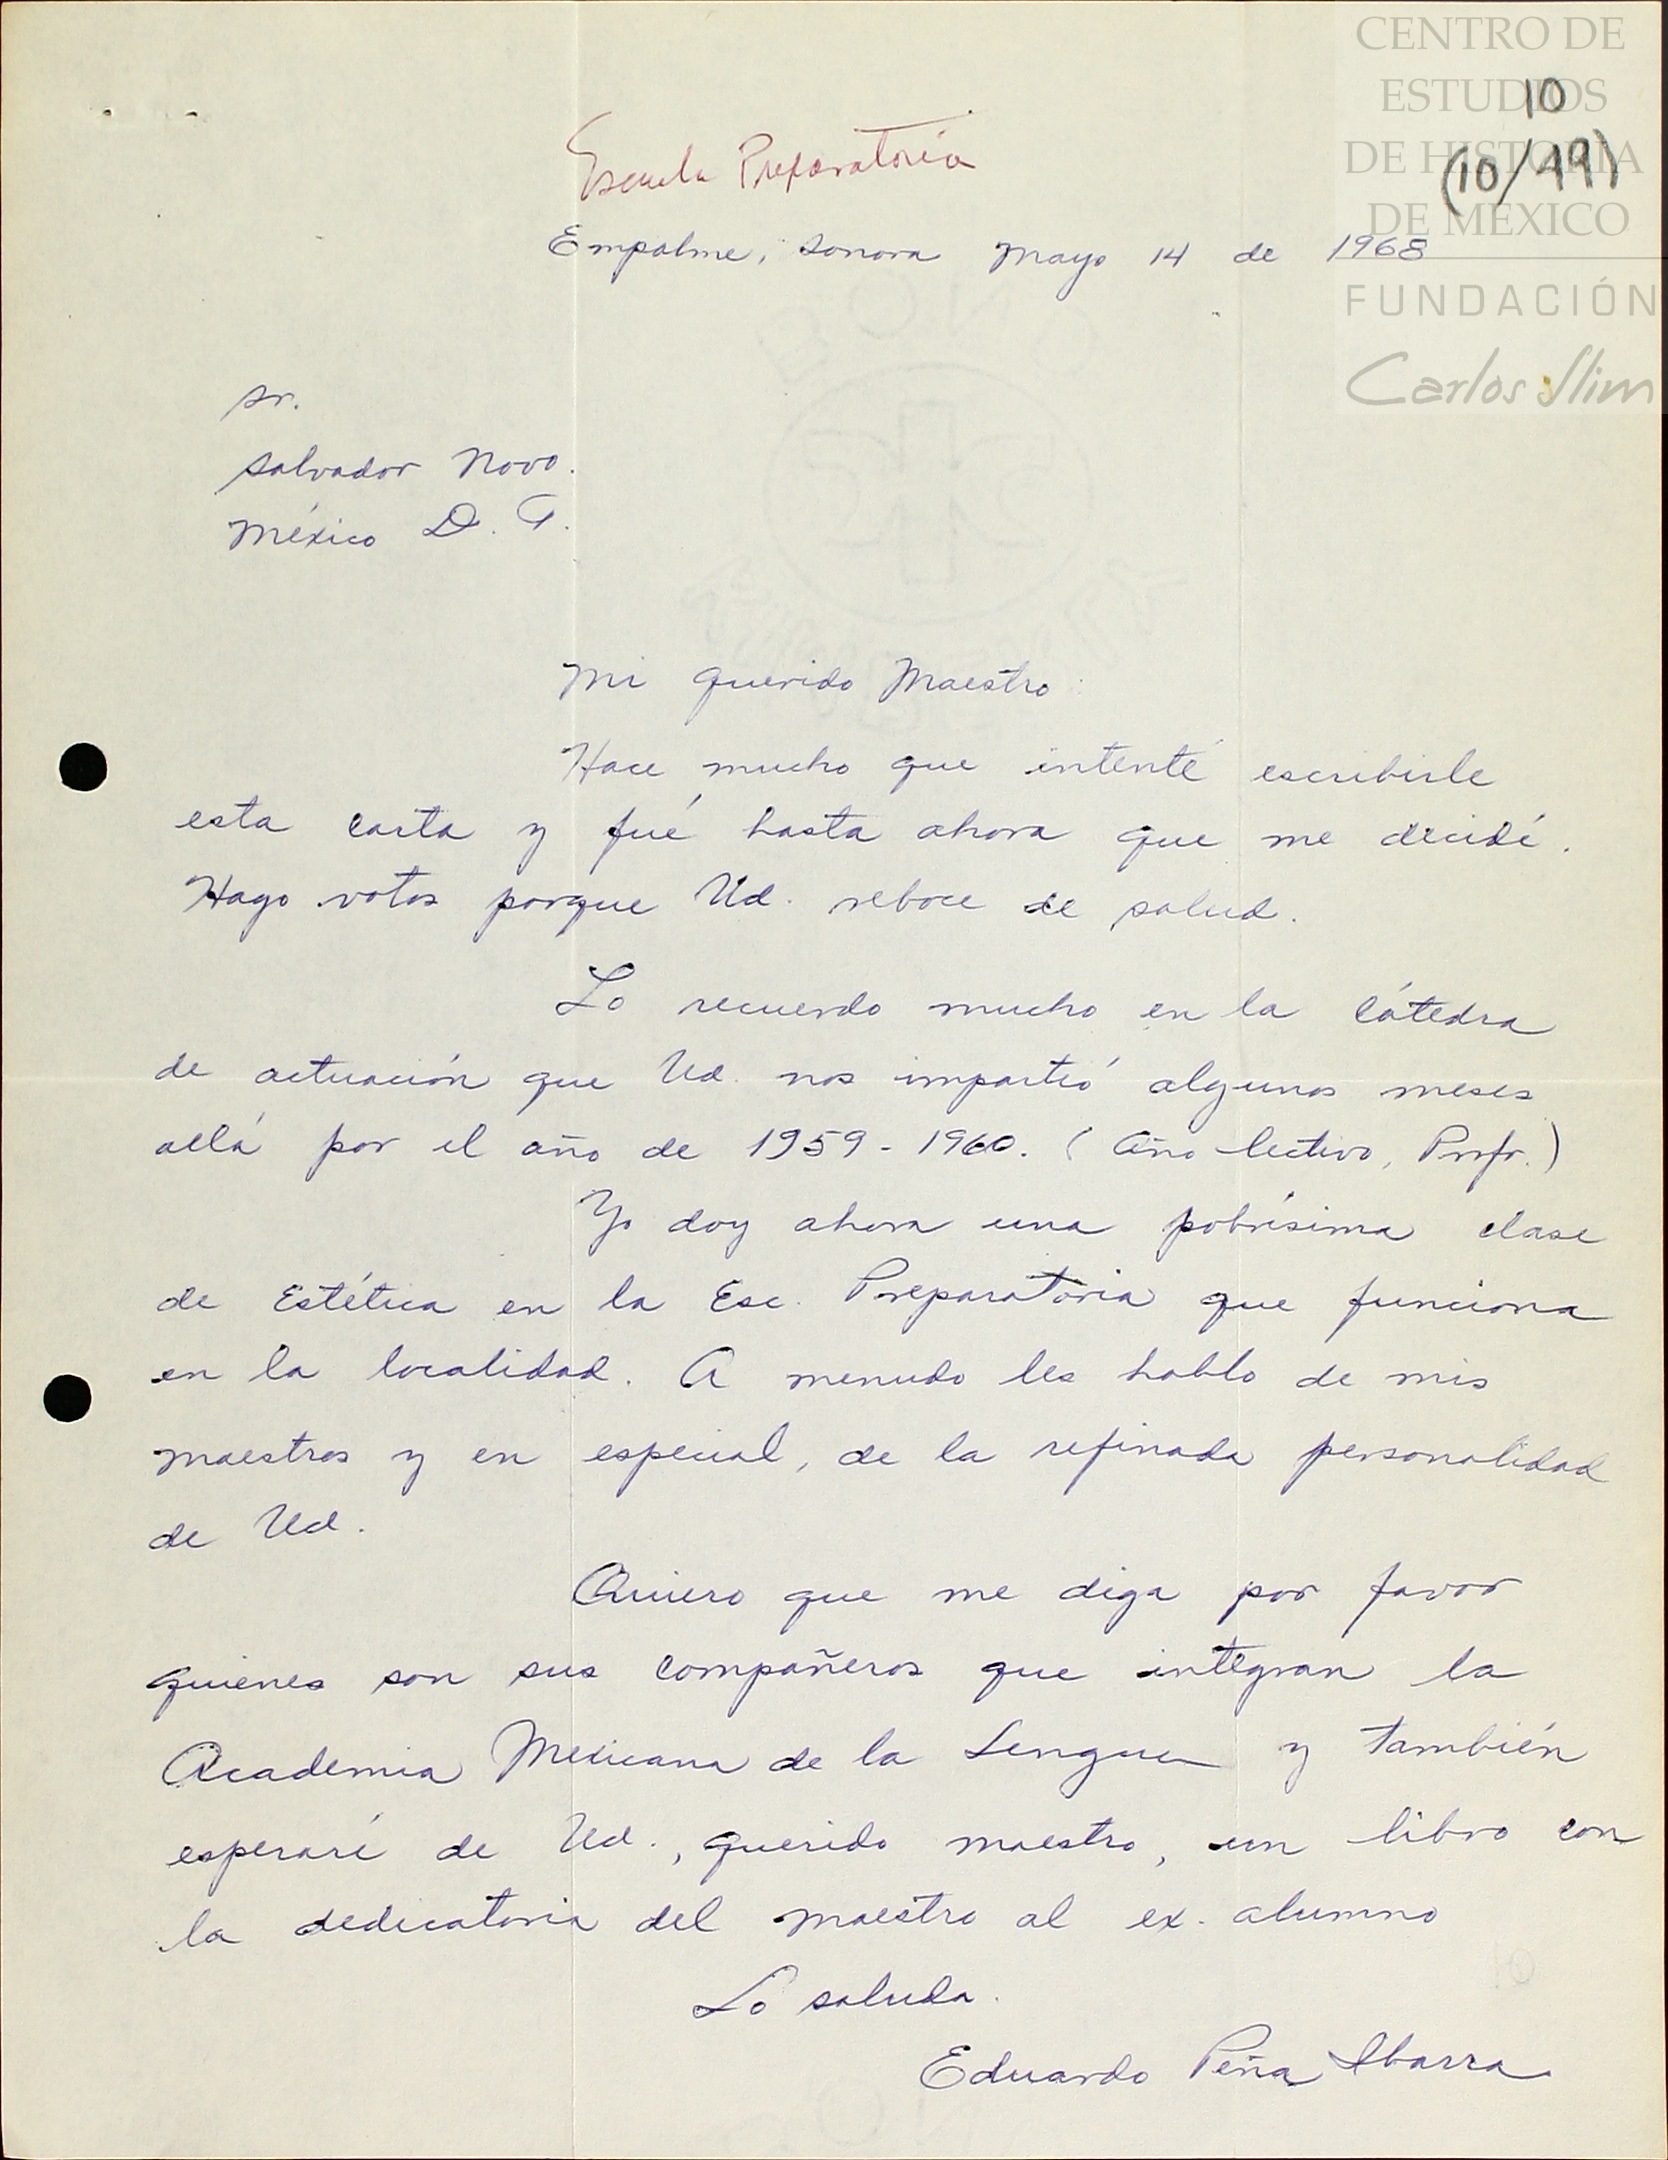 CENTRO DE
ESTUDIOS
DE HISTORIA
DE MÉXICO
FUNDACIÓN
Carlos Slim
10
(10/19)
Escuela Preparatoria
Empalme, Sonora Mayo 14 de 1968
Sr.
Salvador Novo.
México D. F.
Mi querido Maestro:
Hace mucho que intenté escribirle
esta carta y fué hasta ahora que me decidí.
Hago votos porque Ud. reboce de salud.
Lo recuerdo mucho en la cátedra
de actuación que Ud. nos impartió algunos meses
allá por el año de 1959-1960. (Año lectivo, Profr.)
Yo doy ahora una pobrísima clase
de Estética en la Esc. Preparatoria que funciona
en la localidad. A menudo les hablo de mis
maestros y en especial, de la refinada personalidad
de Ud.
Quiero que me diga por favor
quienes son sus compañeros que integran la
Academia Mexicana de la Lengua y también
esperaré de Ud., querido maestro, un libro con
la dedicatoria del maestro al ex. alumno
Lo saluda.
Eduardo Peña Ibarra